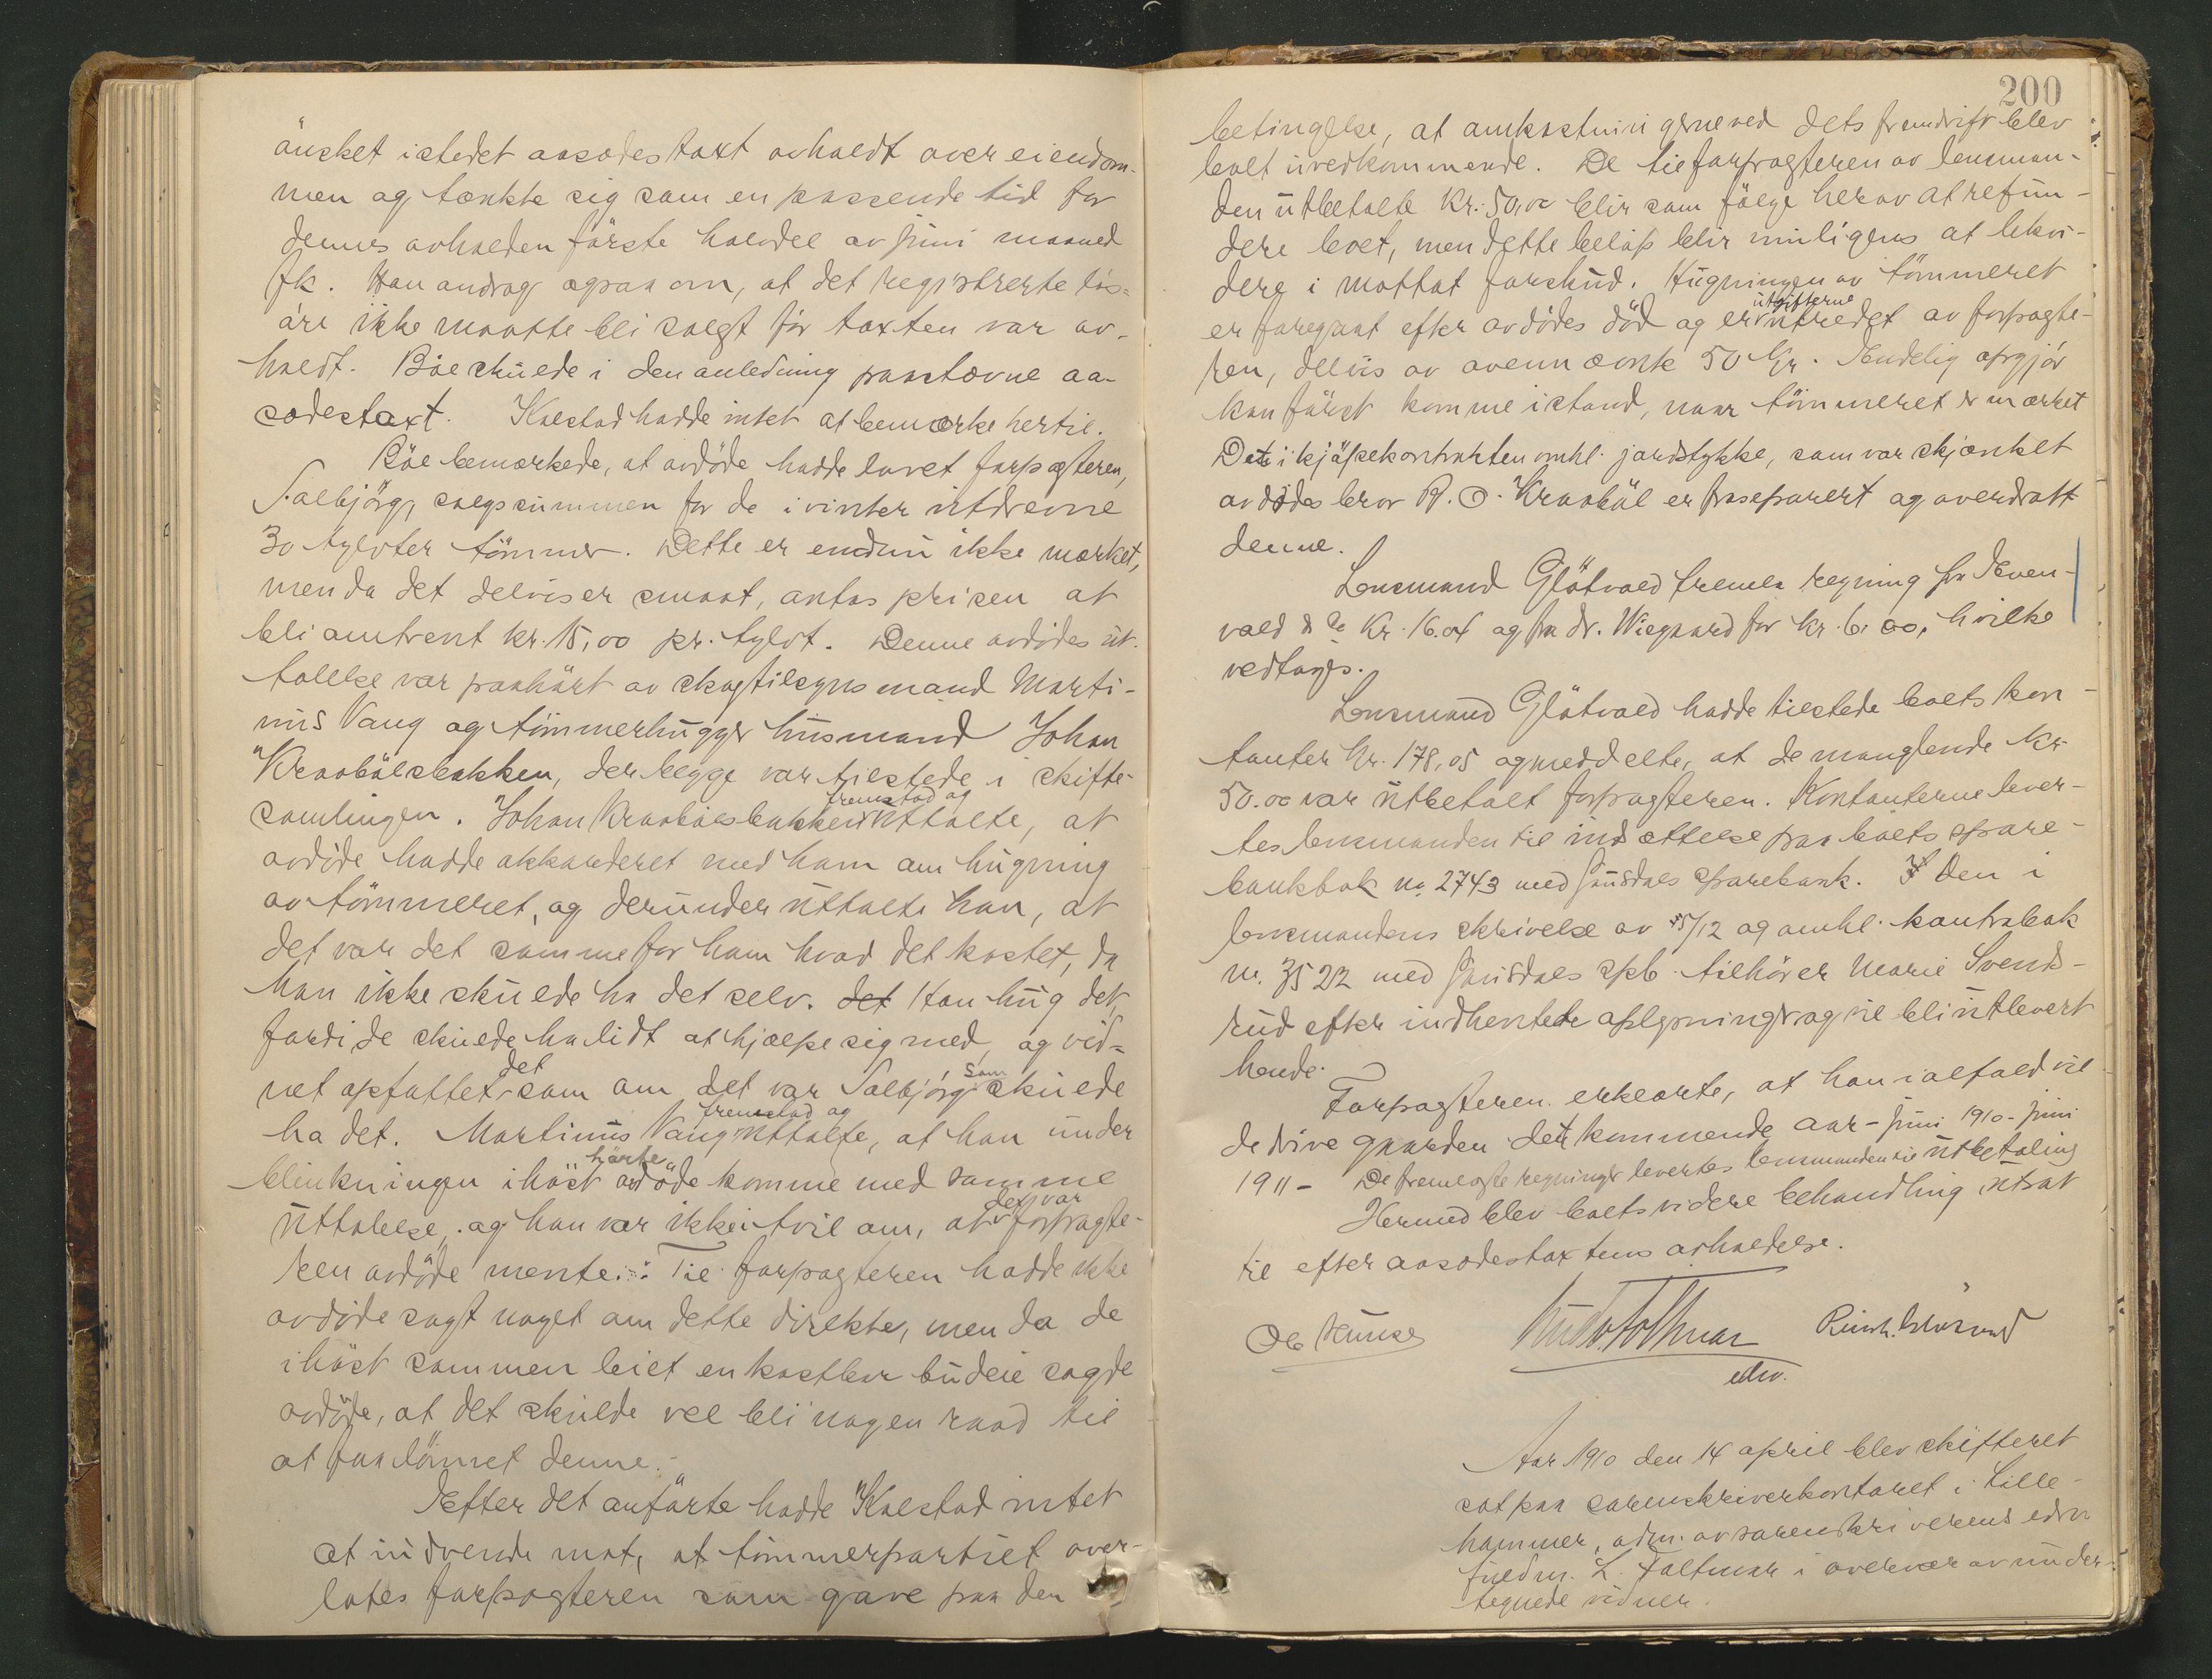 önsket istedet aasædestaxt avholdt over eiendom-
men og tænkte sig som en passende tid for
dennes avholden første halvdel av juni maaned
fk. Han androg ogsaa om, at det registrerte løs-
øre ikke maatte bli solgt før taxten var av-
holdt. Böe skulde i den anledning paastævne aa-
sædestaxt. Kalstad hadde intet at bemærke hertil.
Böe bemærkede, at avdöde hadde lovet forpagteren,
Salbjörg, salgssummen for de i vinter utdrevne
30 tylvter tömmer. Dette er endnu ikke mærket,
men da det delvis er smaat, antas prisen at
bli omtrent kr. 15,00 pr. tylvt. Denne avdødes ut-
talelse var paahört av skogtilsynsmand Marti-
nus Vang og tömmerhugger husmand Johan
Kraabölsbakken, der begge var tilstede i skifte-
samlingen. Johan Kraabölsbakken fremstod og uttalte, at
avdøde hadde akkorderet med ham om hugning
av tömmeret, og derunder uttalte han, at
det var det samme for ham hvad det kostet, da
han ikke skulde ha det selv. det Han hug det,
fordi de skulde ha lidt at hjælpe sig med, og vid-
net opfattet det som om det var Salbjörg som skulde
ha det. Martinus Vang fremstod og uttalte, at han under
blinkningen i höst hørte avdöde komme med samme
uttalelse, og han var ikke i tvil om, at det var forpagte-
ren avdöde mente. Til forpagteren hadde ikke
avdöde sagt noget om dette direkte, men da de
i höst sammen leiet en kostbar budeie sagde
avdöde, at det skulde vel bli nogen raad til
at faa lönnet denne.
Efter det anförte hadde Kalstad intet
at indvende mot, at tömmerpartiet over-
lates forpagteren som gave paa den
200
betingelse, at omkostningerne ved dets fremdrift blev
boet uvedkommende. De til forpagteren av lensman-
den utbetalte Kr. 50,00 blir som fölge herav at refun-
dere boet, men dette beløp blir muligens at likvi-
dere i mottat forskud. Hugningen av tömmeret
er foregaat efter avdödes död og er utgifterne utredet av forpagte-
ren, delvis av ovennævnte 50 Kr. Endelig opgjör
kan først komme istand, naar tömmeret er mærket
Det i kjöpekontrakten omhl. jordstykke, som var skjænket
avdödes bror P. O. Kraaböl er fraseparert og overdratt
denne.
Lensmand Glötvold fremla regning fra Even-
vold & Co Kr. 16.04 og fra dr. Wiegaard for kr. 6.00, hvilke
vedtoges.
Lensmand Glötvold hadde tilstede boets kon-
tanter kr. 178,05 og meddelte, at de manglende kr.
50.00 var utbetalt forpagteren. Kontanterne lever-
tes lensmanden til indsættelse paa boets spare-
bankbok no. 2743 med Gausdals sparebank. Den i
lensmandens skrivelse av 15/12 og omhl. kontrabok
nr. 3522 med Gausdals spb. tilhörer Marie Svends-
rud efter indhentede oplysninger og vil bli utlevert
hende.
Forpagteren erklærte, at han ialfald vil-
de drive gaarden det kommende aar – juni 1910 – juni
1911 – De fremlagte regninger levertes lensmanden til utbetaling
Hermed blev boets videre behandling utsat
til efter aasædestaxtens avholdelse.
edsv.
Aar 1910 den 14 april blev skifteret
sat paa sorenskriverkontoret i Lille-
hammer, adm. av sorenskriverens edsv.
fuldm. L. Foltmar i overvær av under-
tegnede vidner.